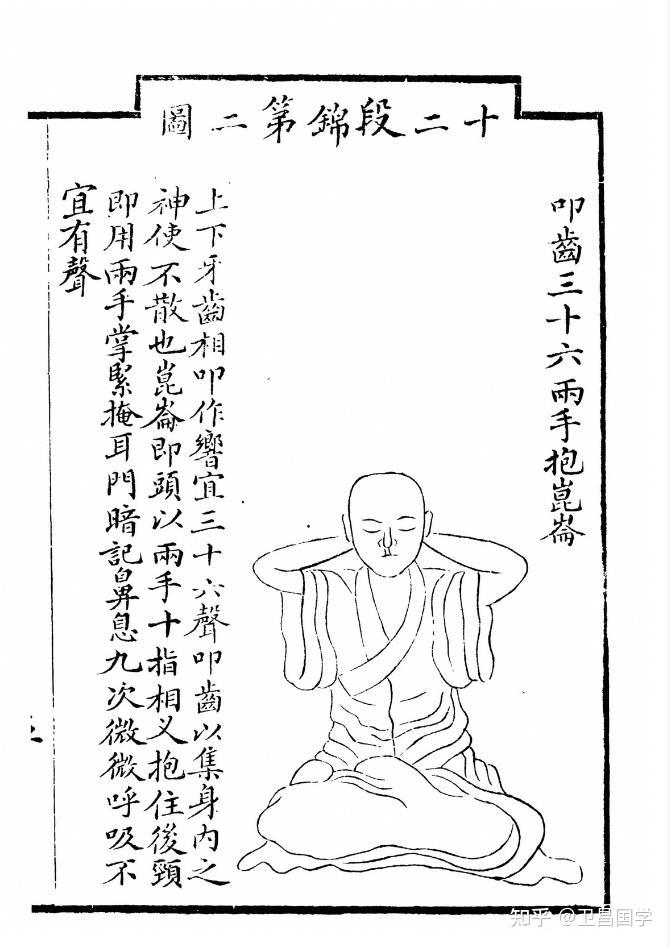 十二段錦第二圖
叩齒三十六兩手抱崑崙
上下牙齒相叩作響宜三十六聲叩齒以集身內之
神使不散也崑崙即頭以兩手十指相义抱住後頸
即用兩手掌緊掩耳門暗記鼻息九次微微呼吸不
宜有聲
知乎 @卫昌国学